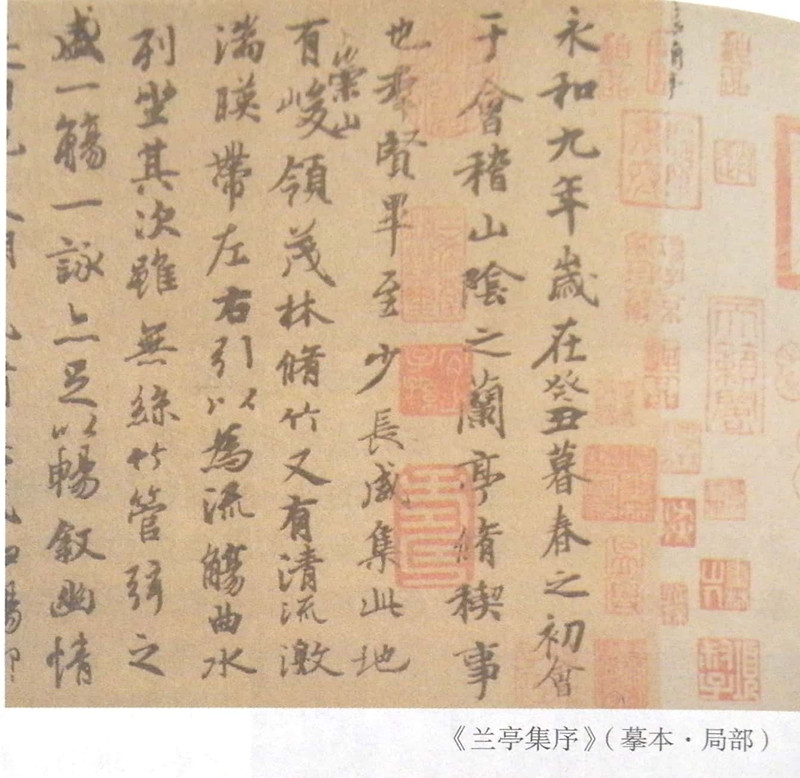 永和九年歲在癸丑暮春之初會
于會稽山陰之蘭亭脩稧事
也羣賢畢至少長咸集此地
有崇山峻領茂林脩竹又有清流激
湍暎帶左右引以為流觴曲水
列坐其次雖無絲竹管弦之
盛一觴一詠亦足以暢叙幽情
《兰亭集序》(摹本·局部)